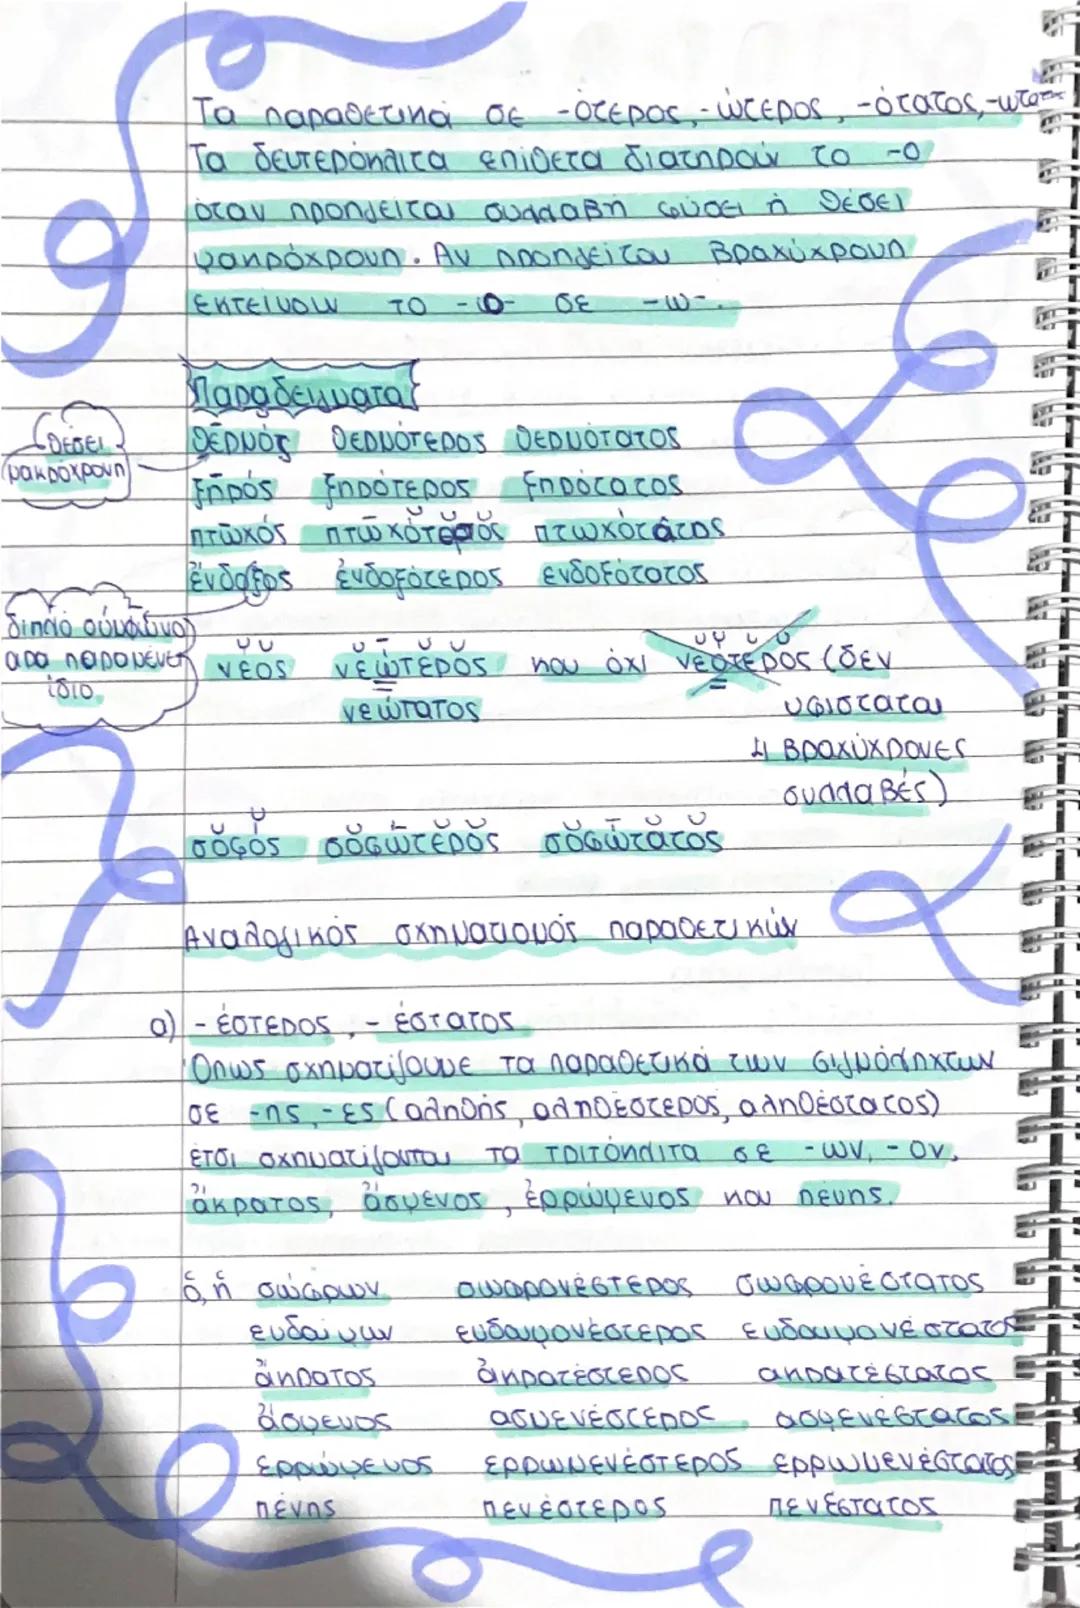 Τα παραθετικά σε -ότερος, -ώτερος, -ότατος, -ωτατος
Τα δευτερόκλιτα επίθετα διατηρούν το -ο
όταν προηγείται συλλαβή φύσει ή θέσει
μακρόχρονη. Αν προηγείται βραχύχρονη
εκτείνουν το -ο- σε -ω-.
Παραδείγματα
θέσει
μακρόχρονη
θερμός θερμότερος θερμότατος
ξηρός ξηρότερος ξηρότατος
πτωχός πτωχότερος πτωχότατος
ένδοξος ενδοξότερος ενδοξότατος
διπλό σύμφωνο
αρα παραμένει
ίδιο.
νέος νεώτερος και όχι νεότερος (δεν
νεώτατος υφίσταται
4 βραχύχρονες
συλλαβές)
σοφός σοφώτερος σοφώτατος
Αναλογικός σχηματισμός παραθετικών
α) -έστερος, -έστατος
Όπως σχηματίζουμε τα παραθετικά των σιγμόληκτων
σε -ης, -ες (αληθής, αληθέστερος, αληθέστατος)
έτσι σχηματίζονται τα τριτόκλιτα σε -ων, -ον,
ἄκρατος, ἄσμενος, ἐρρωμενος και πένης.
ὁ, ἡ σώφρων σωφρονέστερος σωφρονέστατος
ευδαίμων ευδαιμονέστερος ευδαιμονέστατος
ἄκρατος ἀκρατέστερος ακρατέστατος
ἄσμενος ασμενέστερος ασμενέστατος
ερρώμενος ερρωμενέστερος ερρωμενέστατος
πένης πενέστερος πενέστατος